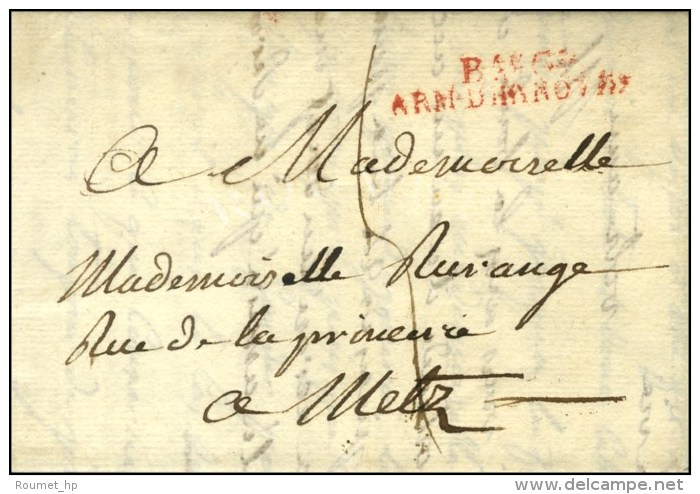 BAU GD
ARM. D'HANOVRE
A Mademoiselle
Mademoiselle Rurange
Rue de la princerie
a Metz
© Roumet_hp
www.delcampe.net